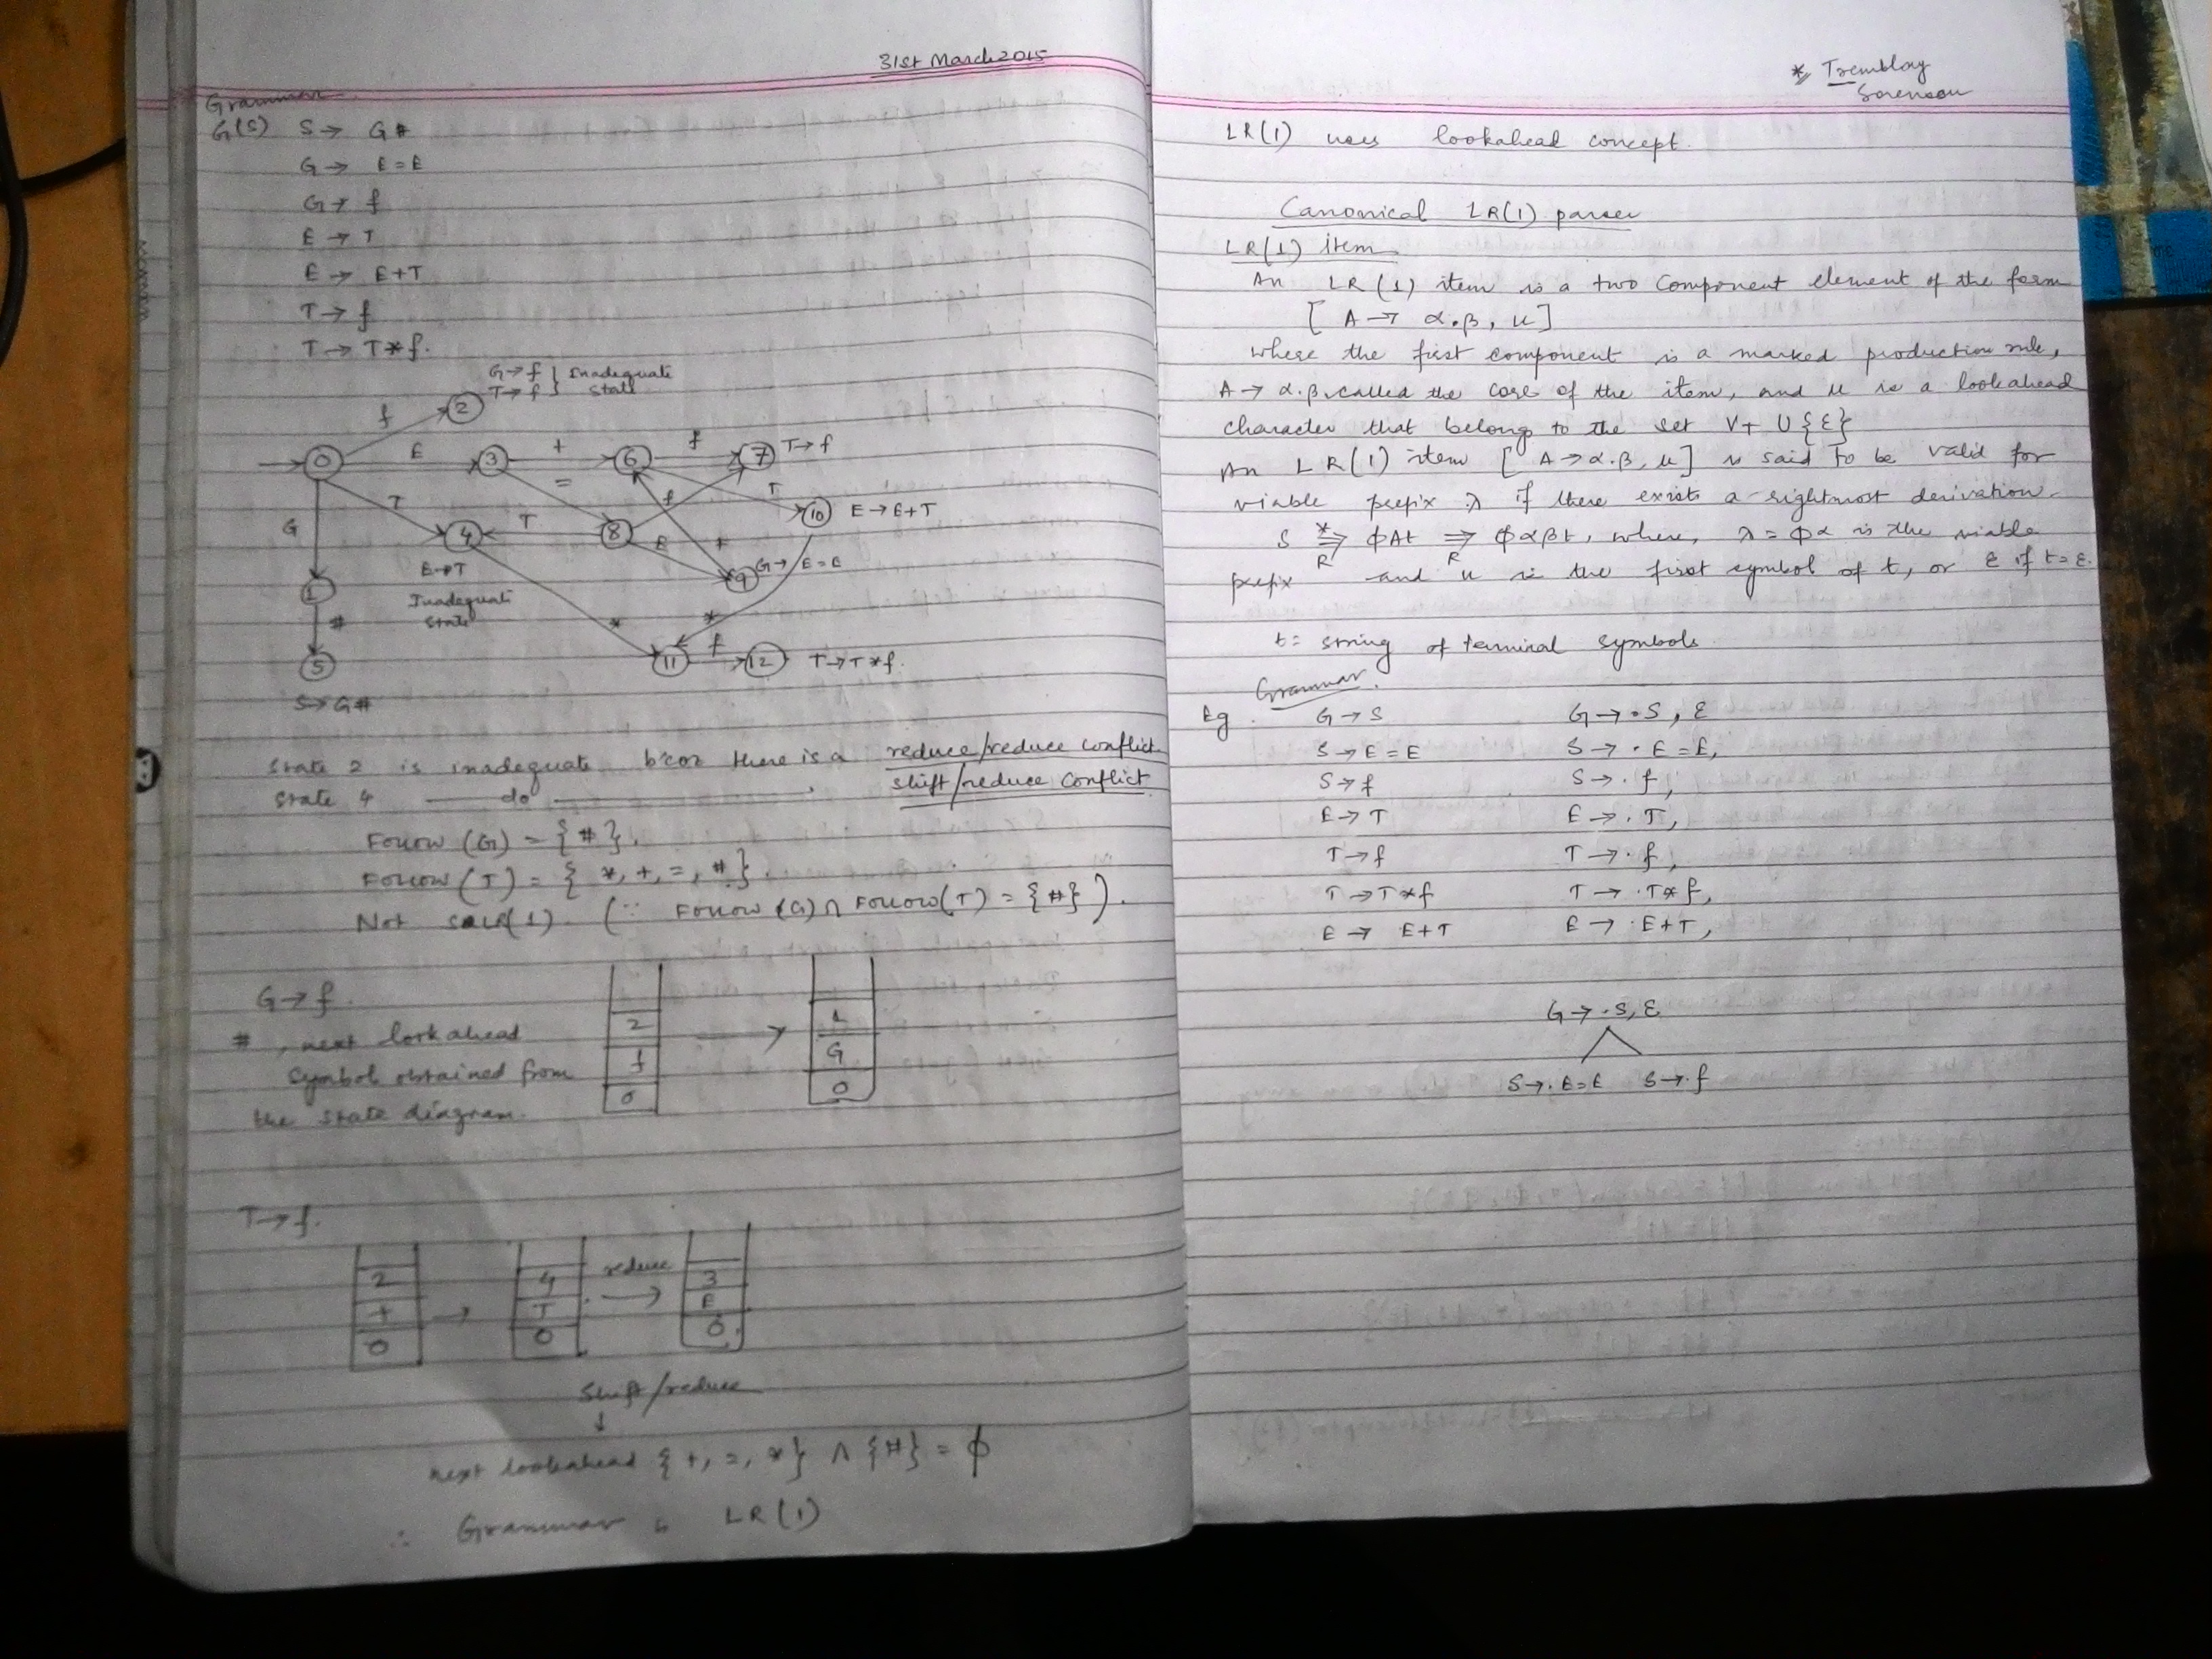 31st March 2015
Grammar.
G(S) S → G#
G → E = E
G → f
E → T
E → E+T
T → f
T → T * f.
f
2
G→f } inadequate
T→f } state
0
E
3
+
6
f
7
T→f
G
T
=
T
4
T
8
f
T
10
E→E+T
E
+
E→T
Inadequate
state
1
9
G→E=E
#
*
*
5
11
f
12
T→T*f.
S→G#
state 2 is inadequate bcoz there is a reduce/reduce conflict
state 4 do shift/reduce conflict
Follow (G) = { # }.
Follow (T) = { *, +, =, # }.
Not SLR(1). (∵ Follow (G) ∩ Follow (T) = { # } ).
G→f.
#, next lookahead
symbol obtained from
the state diagram.
2
f
0
→
1
G
0
T→f.
2
+
0
→
4
T
0
reduce
→
3
E
0
shift/reduce
↓
next lookahead { +, =, * } ∩ {#} = ϕ
∴ Grammar is LR(1)
* Tremblay
Sorenson
LR(1) uses lookahead concept.
Canonical LR(1) parser
LR(1) item
An LR(1) item is a two component element of the form
[ A → α.β, u ]
where the first component is a marked production rule,
A → α.β, called the core of the item, and u is a lookahead
character that belongs to the set VT ∪ {ε}
An LR(1) item [ A → α.β, u ] is said to be valid for
viable prefix λ if there exists a rightmost derivation
S *⇒R ϕAt ⇒R ϕαβt, where, λ = ϕα is the viable
prefix and u is the first symbol of t, or ε if t = ε.
t = string of terminal symbols.
Eg. Grammar.
G → S G → .S, ε
S → E = E S → .E = E,
S → f S → .f,
E → T E → .T,
T → f T → .f,
T → T * f T → .T * f,
E → E+T E → .E+T,
G → .S, ε
S → .E = E S → .f